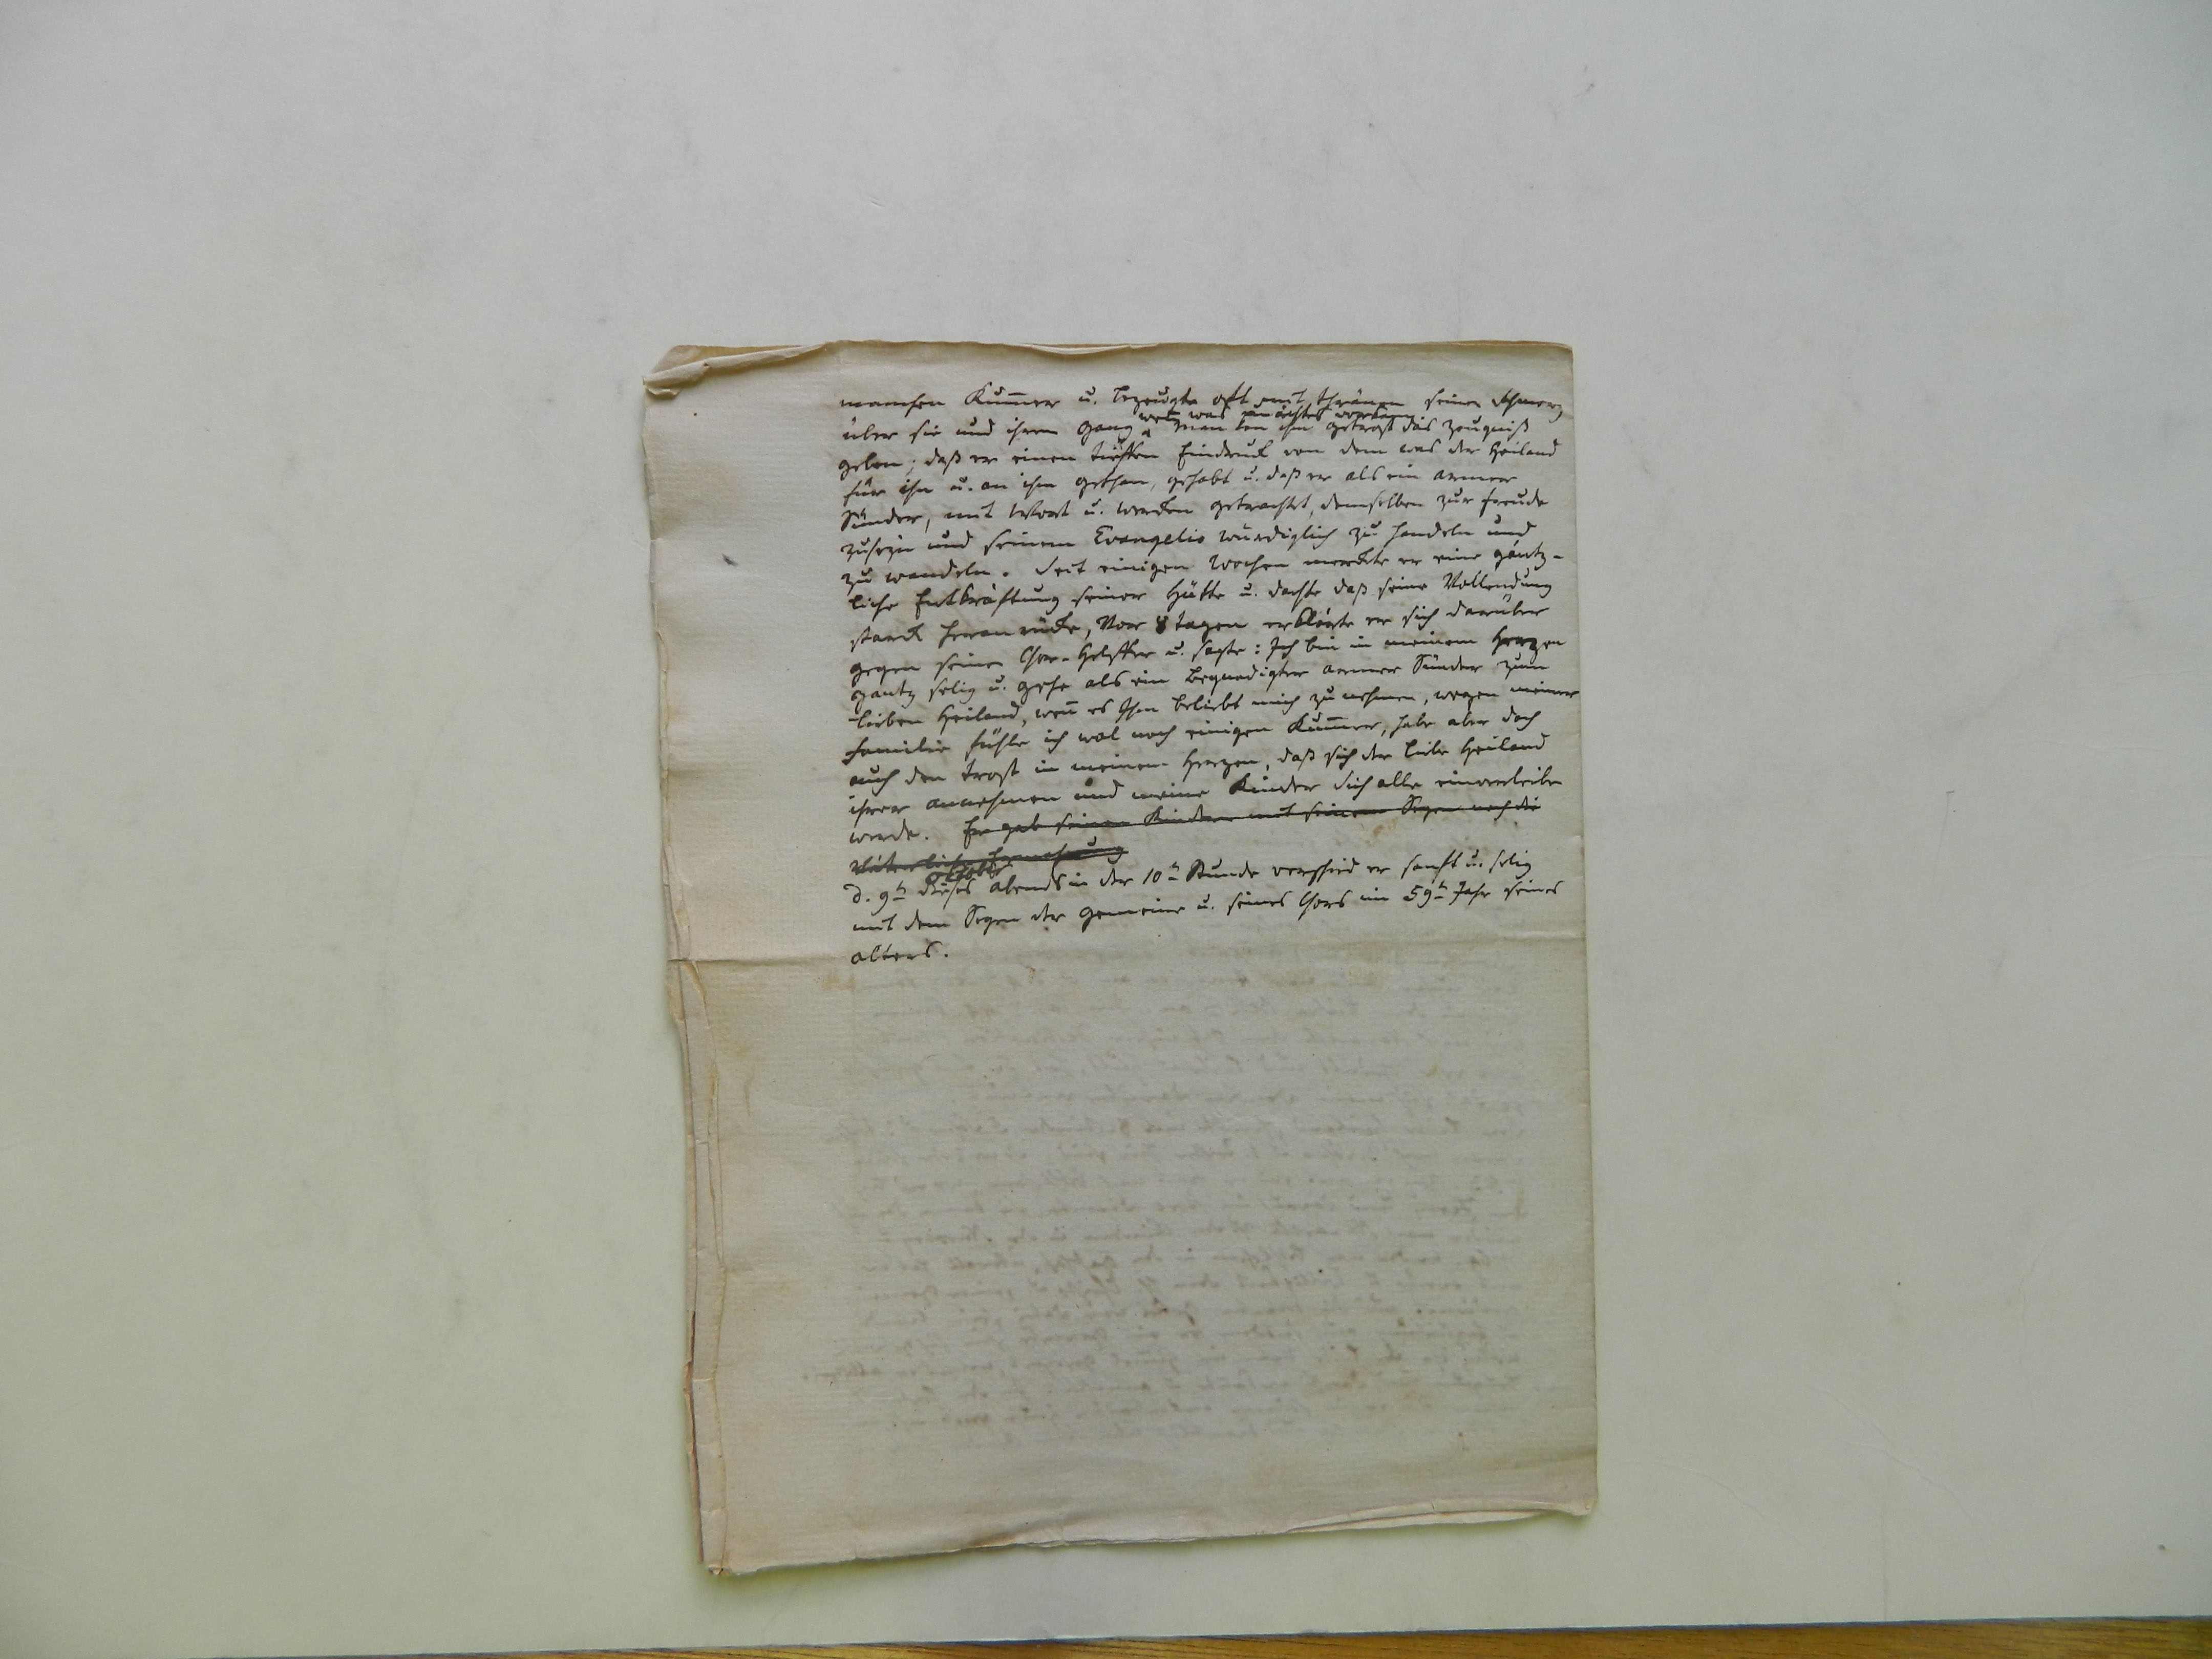 manchen Kum̅er u. bezeugte oft mit thränen seinen Schmerz
über sie und ihren gang man kan ihm getrost das zeugniß
geben; daß er einen tieffen Eindruck von dem was der Heiland
für ihn u. an ihm gethan, gehabt u. daß er als ein armer
Sünder, mit Wort u. wercken getrachtet, demselben zur freude
zuseÿn und seinem Evangelio würdiglich zu handeln und
zu wandeln. Seit einigen Wochen merckte er eine gäntz-
liche Entkräftung seiner Hütte u. dachte daß seine Vollendung
starck heran rücke, Vor 8 tagen erklärte er sich darüber
gegen seinen Chor-Helffer u. sagte: Ich bin in meinem Herzen
gantz selig u. gehe als ein Begnadigter armer Sünder zum
lieben Heiland, wen̅ es Ihm beliebt mich zu nehmen, wegen meiner
familie fühle ich wol noch einigen Kum̅er, habe aber doch
auch den trost in meinem Herzen, daß sich der liebe Heiland
ihrer annehmen und meine Kinder sich alle einverleibe
werde. Er gab seinen Kindern mit seinem Segen noch die
Väterliche Ermahnung
October
d. 9ten dieses abends in der 10ten Stunde verschied er sanft u. selig
mit dem Segen der gemeine u. seines Chors im 59ten Jahr seines
alters.